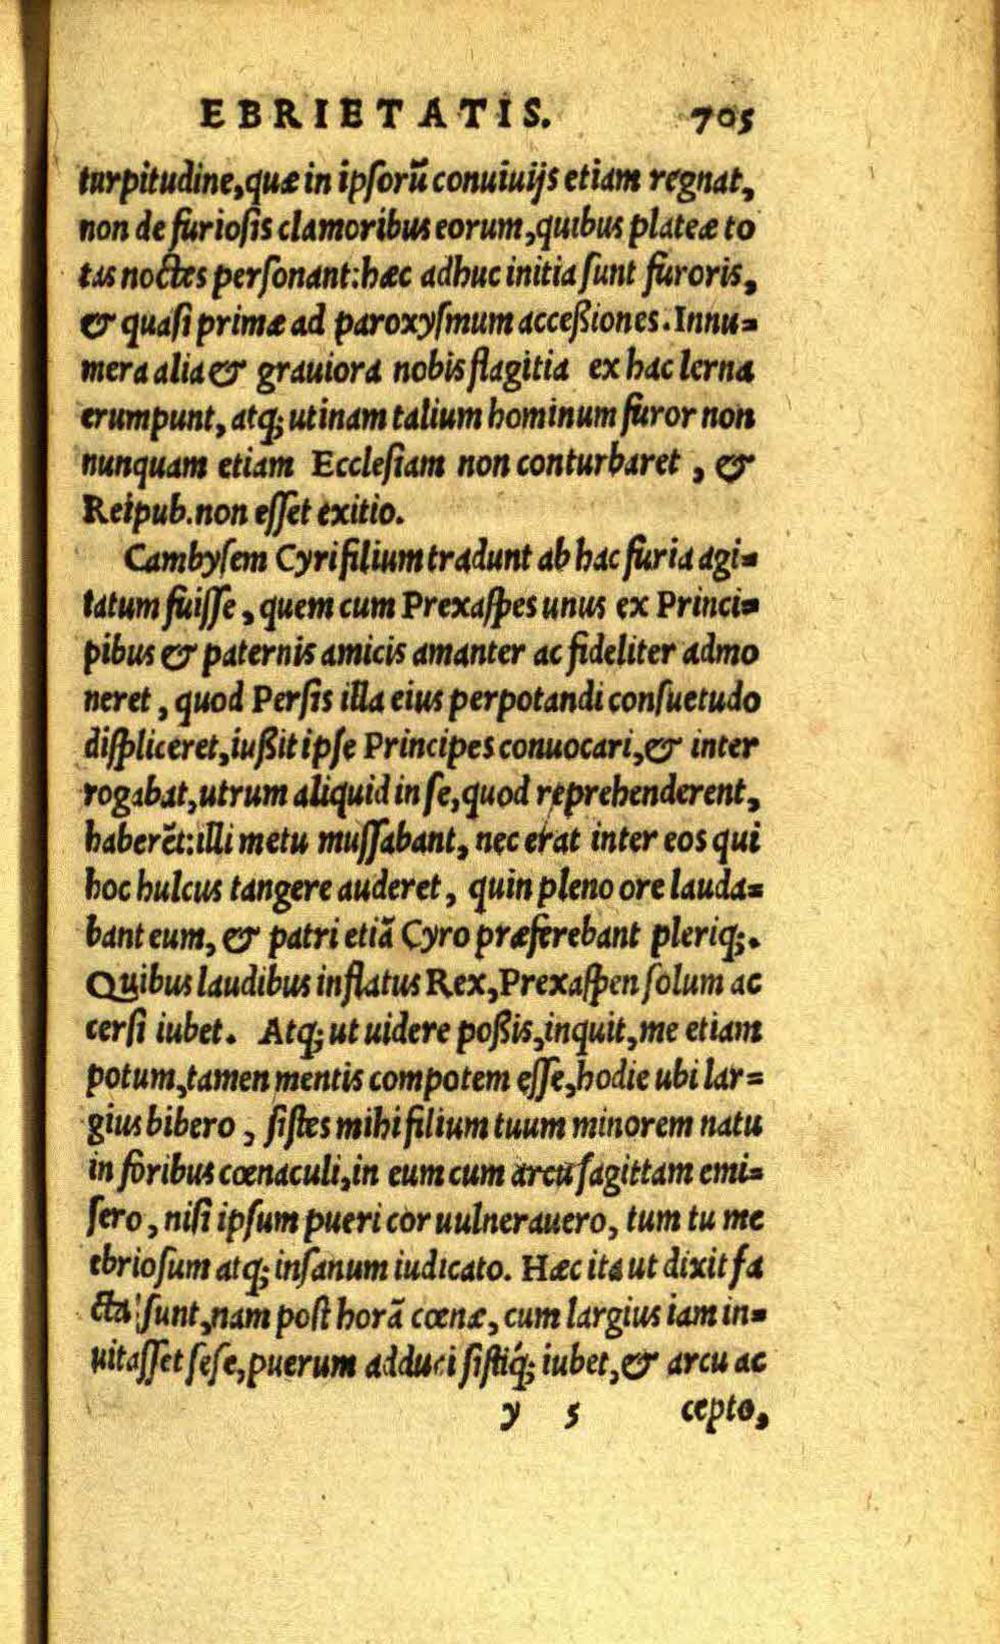 EBRIETATIS. 705
turpitudine, quæ in ipſorũ conuiuijs etiam regnat,
non de furioſis clamoribus eorum, quibus plateæ to
tas noctes perſonant: hæc adhuc initia ſunt furoris,
& quaſi primæ ad paroxyſmum acceßiones. Innu=
mera alia & grauiora nobis flagitia ex hac lerna
erumpunt, atq; utinam talium hominum furor non
nunquam etiam Eccleſiam non conturbaret, &
Reipub. non eſſet exitio.
Cambyſem Cyri filium tradunt ab hac furia agi=
tatum fuiſſe, quem cum Prexaſpes unus ex Princi=
pibus & paternis amicis amanter ac fideliter admo
neret, quod Perſis illa eius perpotandi conſuetudo
diſpliceret, iußit ipſe Principes conuocari, & inter
rogabat, utrum aliquid in ſe, quod reprehenderent,
haberẽt: illi metu muſſabant, nec erat inter eos qui
hoc hulcus tangere auderet, quin pleno ore lauda=
bant eum, & patri etiã Cyro præferebant pleriq;.
Quibus laudibus inflatus Rex, Prexaſpen ſolum ac
cerſi iubet. Atq; ut uidere poßis, inquit, me etiam
potum, tamen mentis compotem eſſe, hodie ubi lar=
gius bibero, ſiſtes mihi filium tuum minorem natu
in foribus cœnaculi, in eum cum arcu ſagittam emi=
ſero, niſi ipſum pueri cor uulnerauero, tum tu me
ebrioſum atq; inſanum iudicato. Hæc ita ut dixit fa
cta ſunt, nam poſt horã cœnæ, cum largius iam in=
uitaſſet ſeſe, puerum adduci ſiſtiq́; iubet, & arcu ac
y 5 cepto,